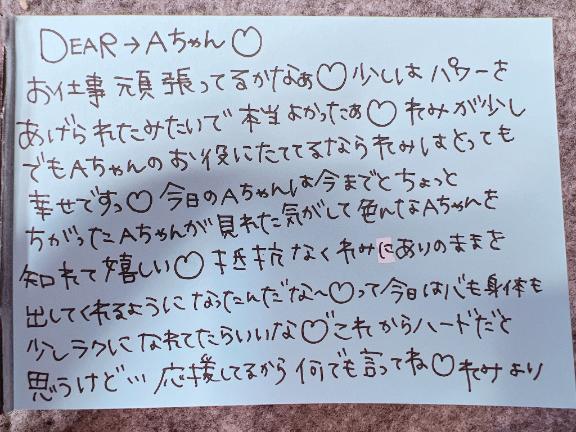 DEAR→Aちゃん♡
お仕事 頑張ってるかなぁ♡少しは パワーを
あげられたみたいで 本当よかったぁ♡ れみが少し
でもAちゃんのお役にたててるなられみはとっても
幸せですっ♡ 今日のAちゃんは今までとちょっと
ちがったAちゃんが見れた気がして色んなAちゃんを
知れて嬉しい♡ 抵抗なくれみにありのままを
出してくれるようになったんだな〜♡って今日は心も身体も
少しラクになれてたらいいな♡これからハードだと
思うけど… 応援してるから何でも言ってね♡ れみより